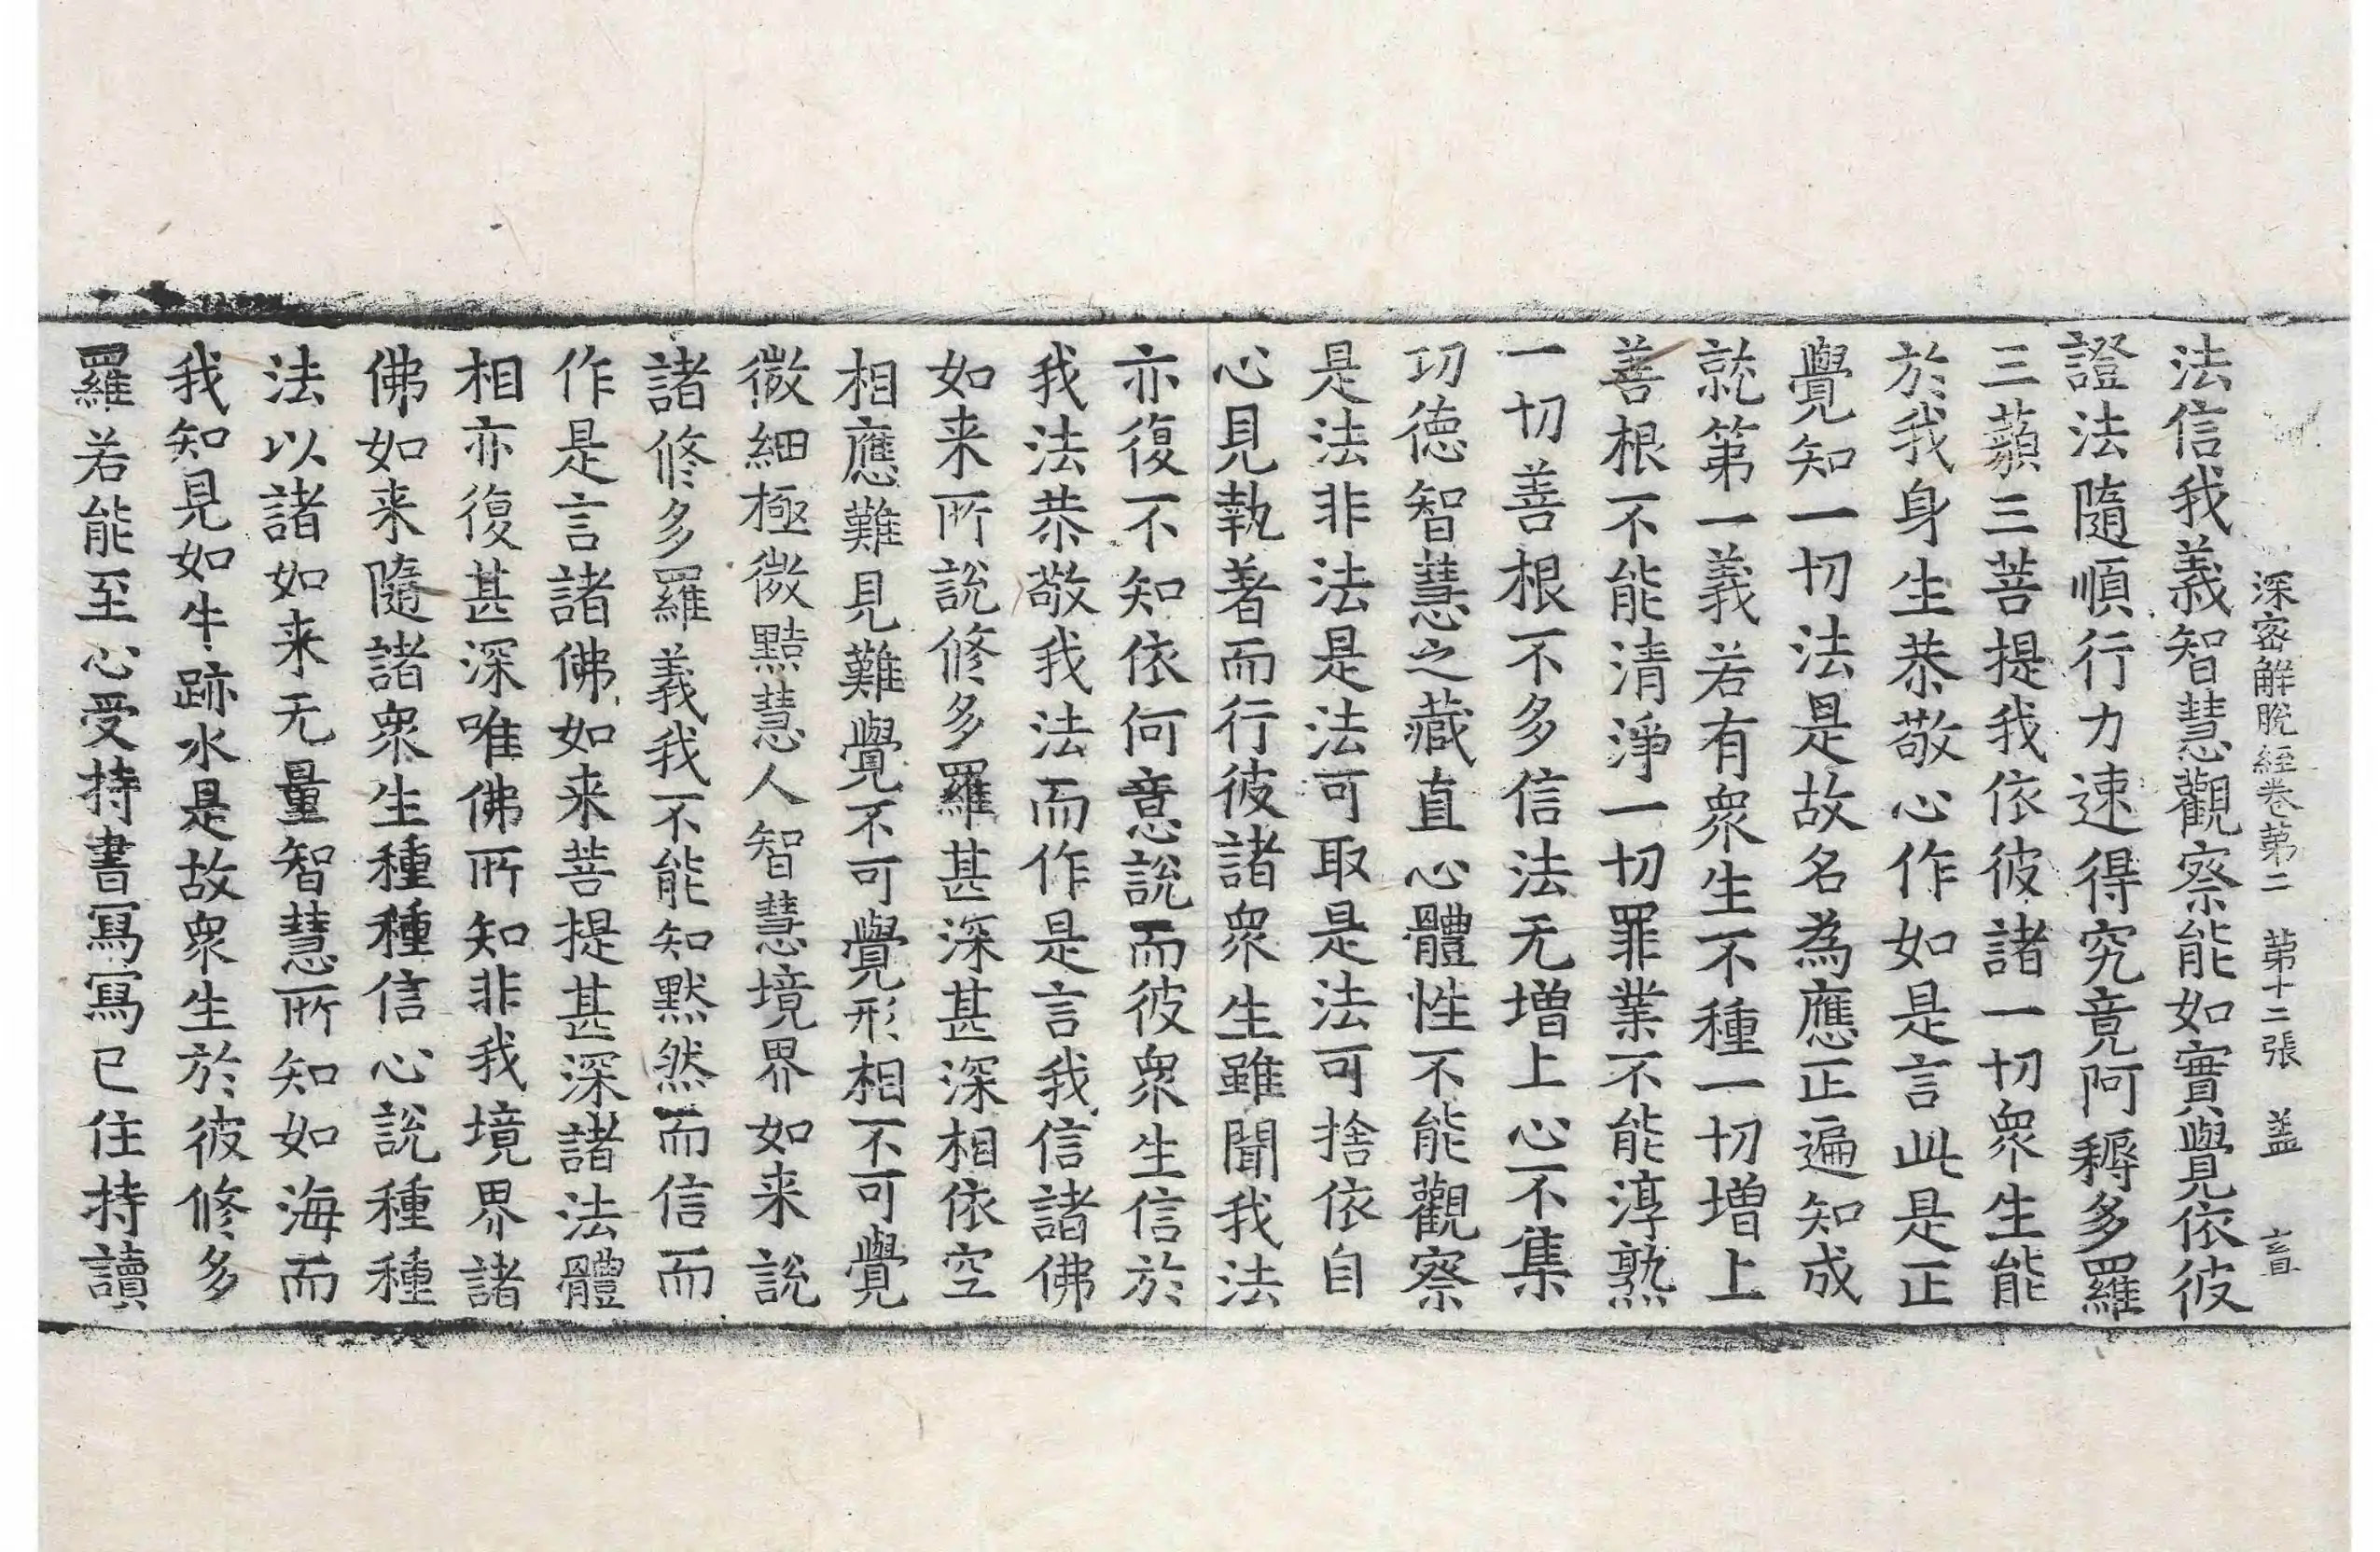 深密解脫經卷第二　第十二張　盖　盲
法信我義智慧觀察能如實覺依彼
證法隨順行力速得究竟阿耨多羅
三藐三菩提我依彼諸一切衆生能
於我身生恭敬心作如是言此是正
覺知一切法是故名為應正遍知成
就第一義若有衆生不種一切增上
善根不能清淨一切罪業不能淳熟
一切善根不多信法无增上心不集
功德智慧之藏直心體性不能觀察
是法非法是法可取是法可捨依自
心見執著而行彼諸衆生雖聞我法
亦復不知依何意說而彼衆生信於
我法恭敬我法而作是言我信諸佛
如来所說修多羅甚深甚深相依空
相應難見難覺不可覺形相不可覺
微細極微黠慧人智慧境界如来說
諸修多羅義我不能知默然而信而
作是言諸佛如来菩提甚深諸法體
相亦復甚深唯佛所知非我境界諸
佛如来隨諸衆生種種信心說種種
法以諸如来无量智慧所知如海而
我知見如牛跡水是故衆生於彼修多
羅若能至心受持書寫寫已住持讀